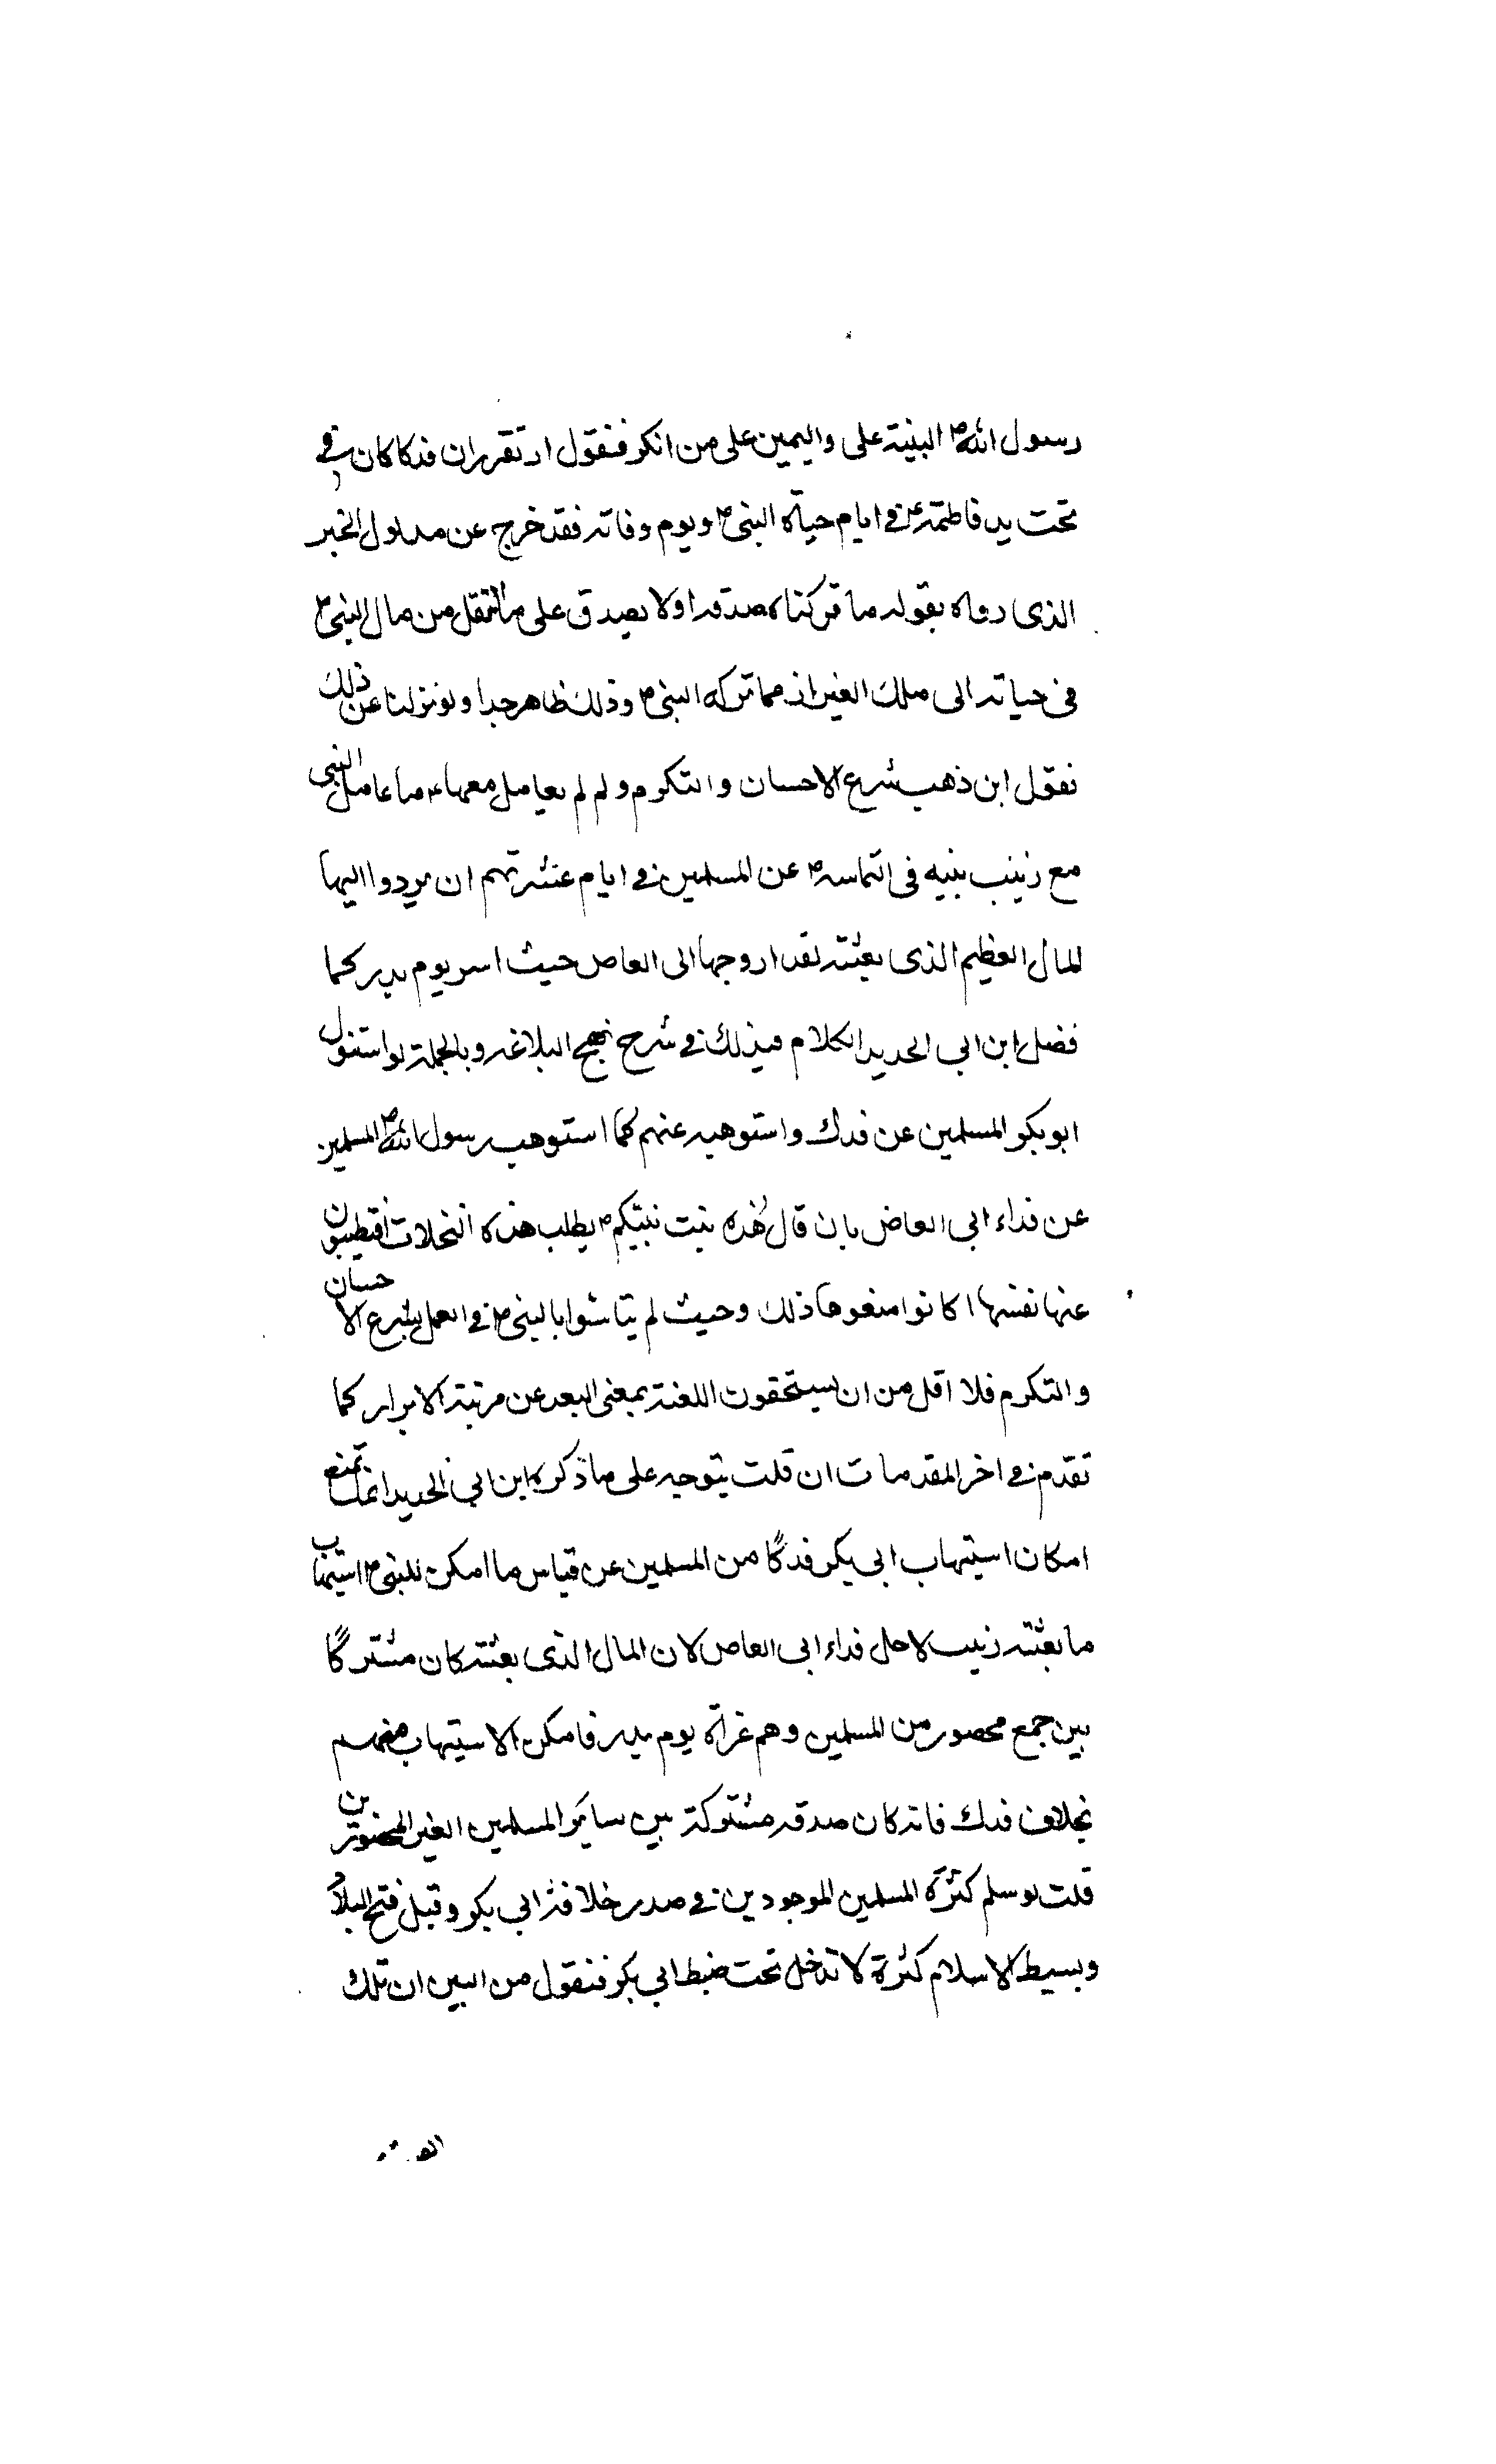 رسول الله ص البنية على واليمين على من انكر فنقول اد تقرر ان فدكا كان في
تحت يد فاطمة ع في ايام حياة النبى ص ويوم وفاته فقد خرج عن مدلول الخبر
الذى رواه بقوله ما تركناه صدقه او لا يصدق على ما انتقل من مال النبى ص
فى حياته الى ملك الغير انه مما تركه النبى ص وذلك ظاهر جدا ولو نزلنا عن ذلك
نقول اين ذهب شرع الاحسان والتكرم ولم لم يعامل معها ع ما عامل النبى
مع زينب بنيه فى التماسه ص عن المسلمين في ايام عشرتهم ان يردوا اليها
المال العظيم الذى بعثته لفدا زوجها ابى العاص حيث اسر يوم بدر كما
فصل ابن ابى الحديد الكلام فيذلك في شرح نهج البلاغه وبالجملة لو استنزل
ابو بكر المسلمين عن فدك واستوهبه عنهم كما استوهب رسول الله ص المسلمين
عن فداء ابى العاص بان قال هذه بنت نبيكم ص يطلب هذه النخلات افتطيبون
عنها نفسها اكانوا منعوها ذلك وحيث لم يتاسوا بالنبى ص في العمل بشرع الاحسان
والتكرم فلا اقل من ان يستحقون اللعنة بمعنى البعد عن مرتبة الابرار كما
تقدم في اخر المقدمات ان قلت يتوجه على ما ذكره ابن ابي الحديد انما تمنع
امكان استيهاب ابى بكر فدكًا من المسلمين عن قياس ما امكن للنبى ص استيهاب
ما بعثته زينب لاجل فداء ابى العاص لان المال الذى بعثته كان مشتركًا
بين جمع محصور من المسلمين وهم غزاة يوم بدر فامكن الاستيهاب منهم
بخلاف فدك فانه كان صدقه مشتركة بين ساير المسلمين الغير المحصورين
قلت لو سلم كثرة المسلمين الموجودين في صدر خلافة ابي بكر وقبل فتح البلاد
وبسيط الاسلام كثرة لا تدخل تحت ضبط ابي بكر فنقول من البين ان تلك